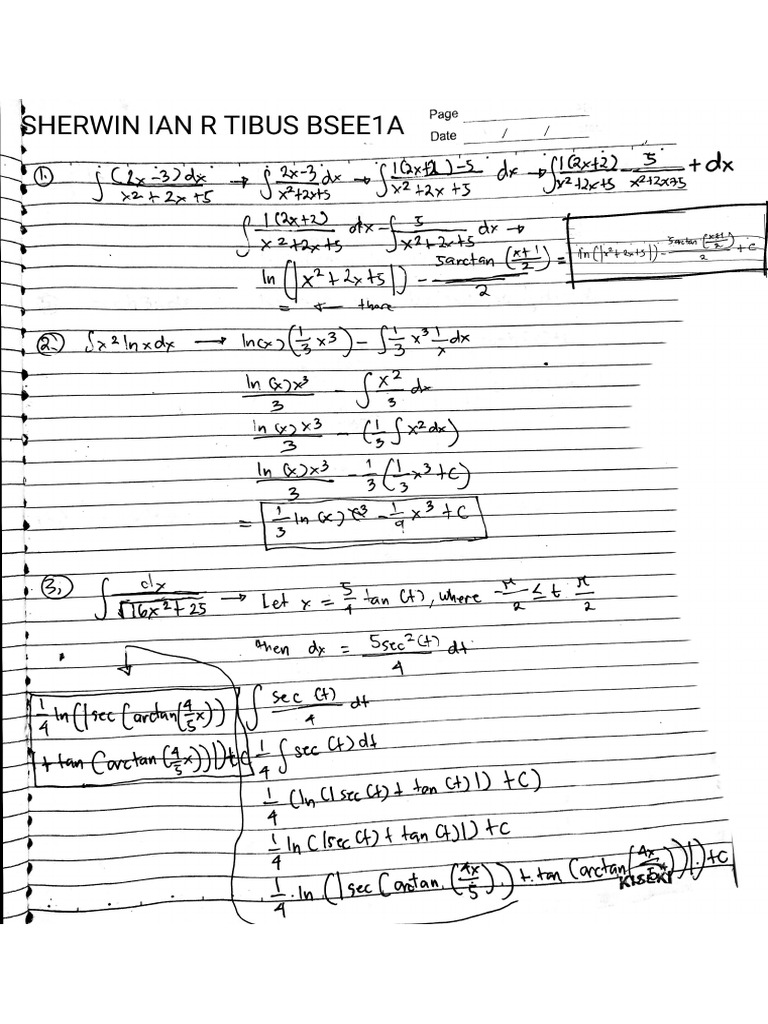 SHERWIN IAN R TIBUS BSEE1A
Page
Date / /
1. ∫ (2x-3)dx / x²+2x+5 → ∫ 2x-3 / x²+2x+5 dx → ∫ 1(2x+2)-5 / x²+2x+5 dx → ∫ 1(2x+2) / x²+2x+5 - 5 / x²+2x+5 + dx
∫ 1(2x+2) / x²+2x+5 dx - ∫ 5 / x²+2x+5 dx →
ln(|x²+2x+5|) - 5arctan(x+1 / 2) / 2 = ln(|x²+2x+5|) - 5arctan(x+1 / 2) / 2 + C
= ←
2. ∫x² ln x dx → ln(x)(1/3 x³) - ∫ 1/3 x³ 1/x dx
ln(x)x³ / 3 - ∫ x² / 3 dx
ln(x)x³ / 3 - (1/3 ∫x² dx)
ln(x)x³ / 3 - 1/3 (1/3 x³+C)
= 1/3 ln(x)x³ - 1/9 x³ + C
3. ∫ dx / √16x²+25 → Let x = 5/4 tan(t), where -π/2 ≤ t π/2
then dx = 5sec²(t) / 4 dt
∫ sec(t) / 4 dt
1/4 ln(|sec(arctan(4/5 x))
+ tan(arctan(4/5 x))|)+C
1/4 ∫ sec(t) dt
1/4 (ln(|sec(t) + tan(t)|) + C)
1/4 ln(|sec(t) + tan(t)|) + C
1/4 · ln(|sec(arctan(4x/5)) + tan(arctan(4x/5))|) + C
KISEKI